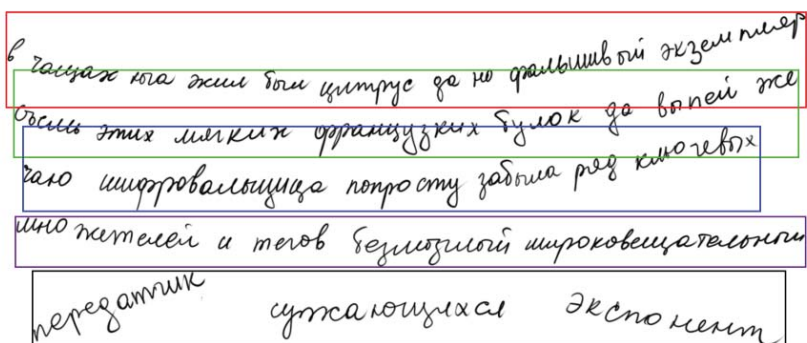 в чащах юга жил был цитрус да но фальшивый экземпляр
съешь этих мягких французких булок да выпей же
чаю шифровальщица попросту забыла ряд ключевых
множетелей и тегов безмозглый широковещательный
передатчик сужающихся экспонент